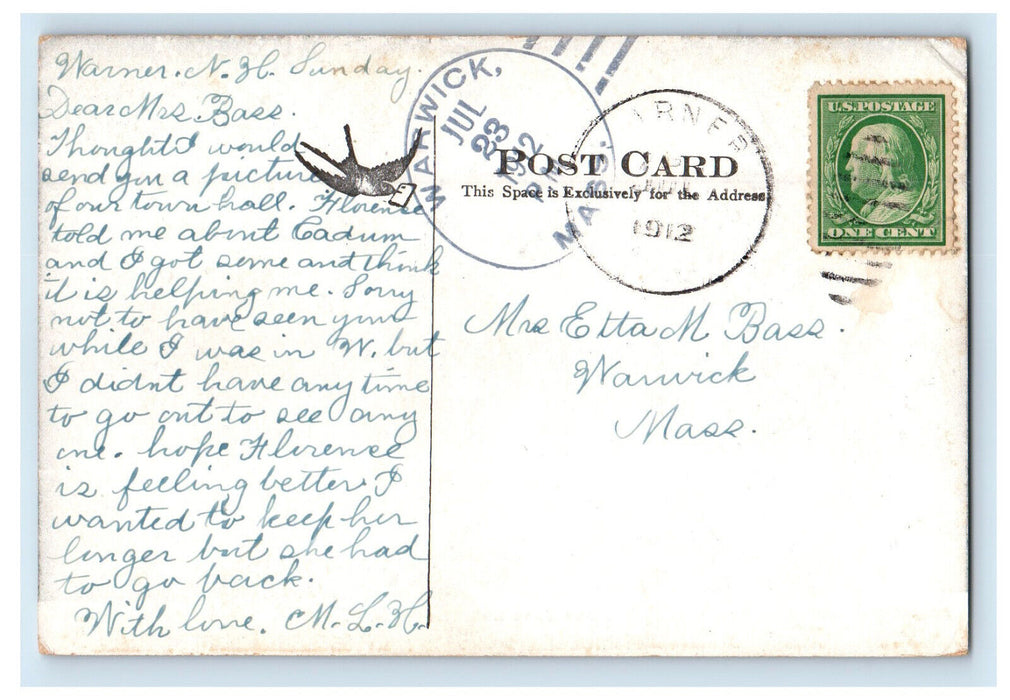 Warner. N. H. Sunday.
Dear Mrs Bass.
Thought I would
send you a picture
of our town hall. Florence
told me about Cadum
and I got some and think
it is helping me. Sorry
not to have seen you
while I was in W. but
I didnt have any time
to go out to see any
one. hope Florence
is feeling better. I
wanted to keep her
longer but she had
to go back.
With love. M. L. H.
WARWICK, MASS.
JUL
23
1912
WARNER
1912
POST CARD
This Space is Exclusively for the Address
U.S. POSTAGE
ONE CENT
Mrs Etta M Bass.
Warwick
Mass.